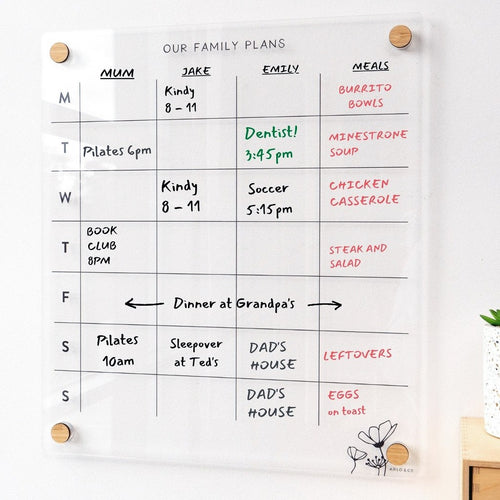 OUR FAMILY PLANS
MUM JAKE EMILY MEALS
M Kindy BURRITO
8 – 11 BOWLS
T Pilates 6pm Dentist! MINESTRONE
3:45pm SOUP
W Kindy Soccer CHICKEN
8 – 11 5:15pm CASSEROLE
T BOOK STEAK AND
CLUB SALAD
8PM
F ← Dinner at Grandpa's →
S Pilates Sleepover DAD'S LEFTOVERS
10am at Ted's HOUSE
S DAD'S EGGS
HOUSE on toast